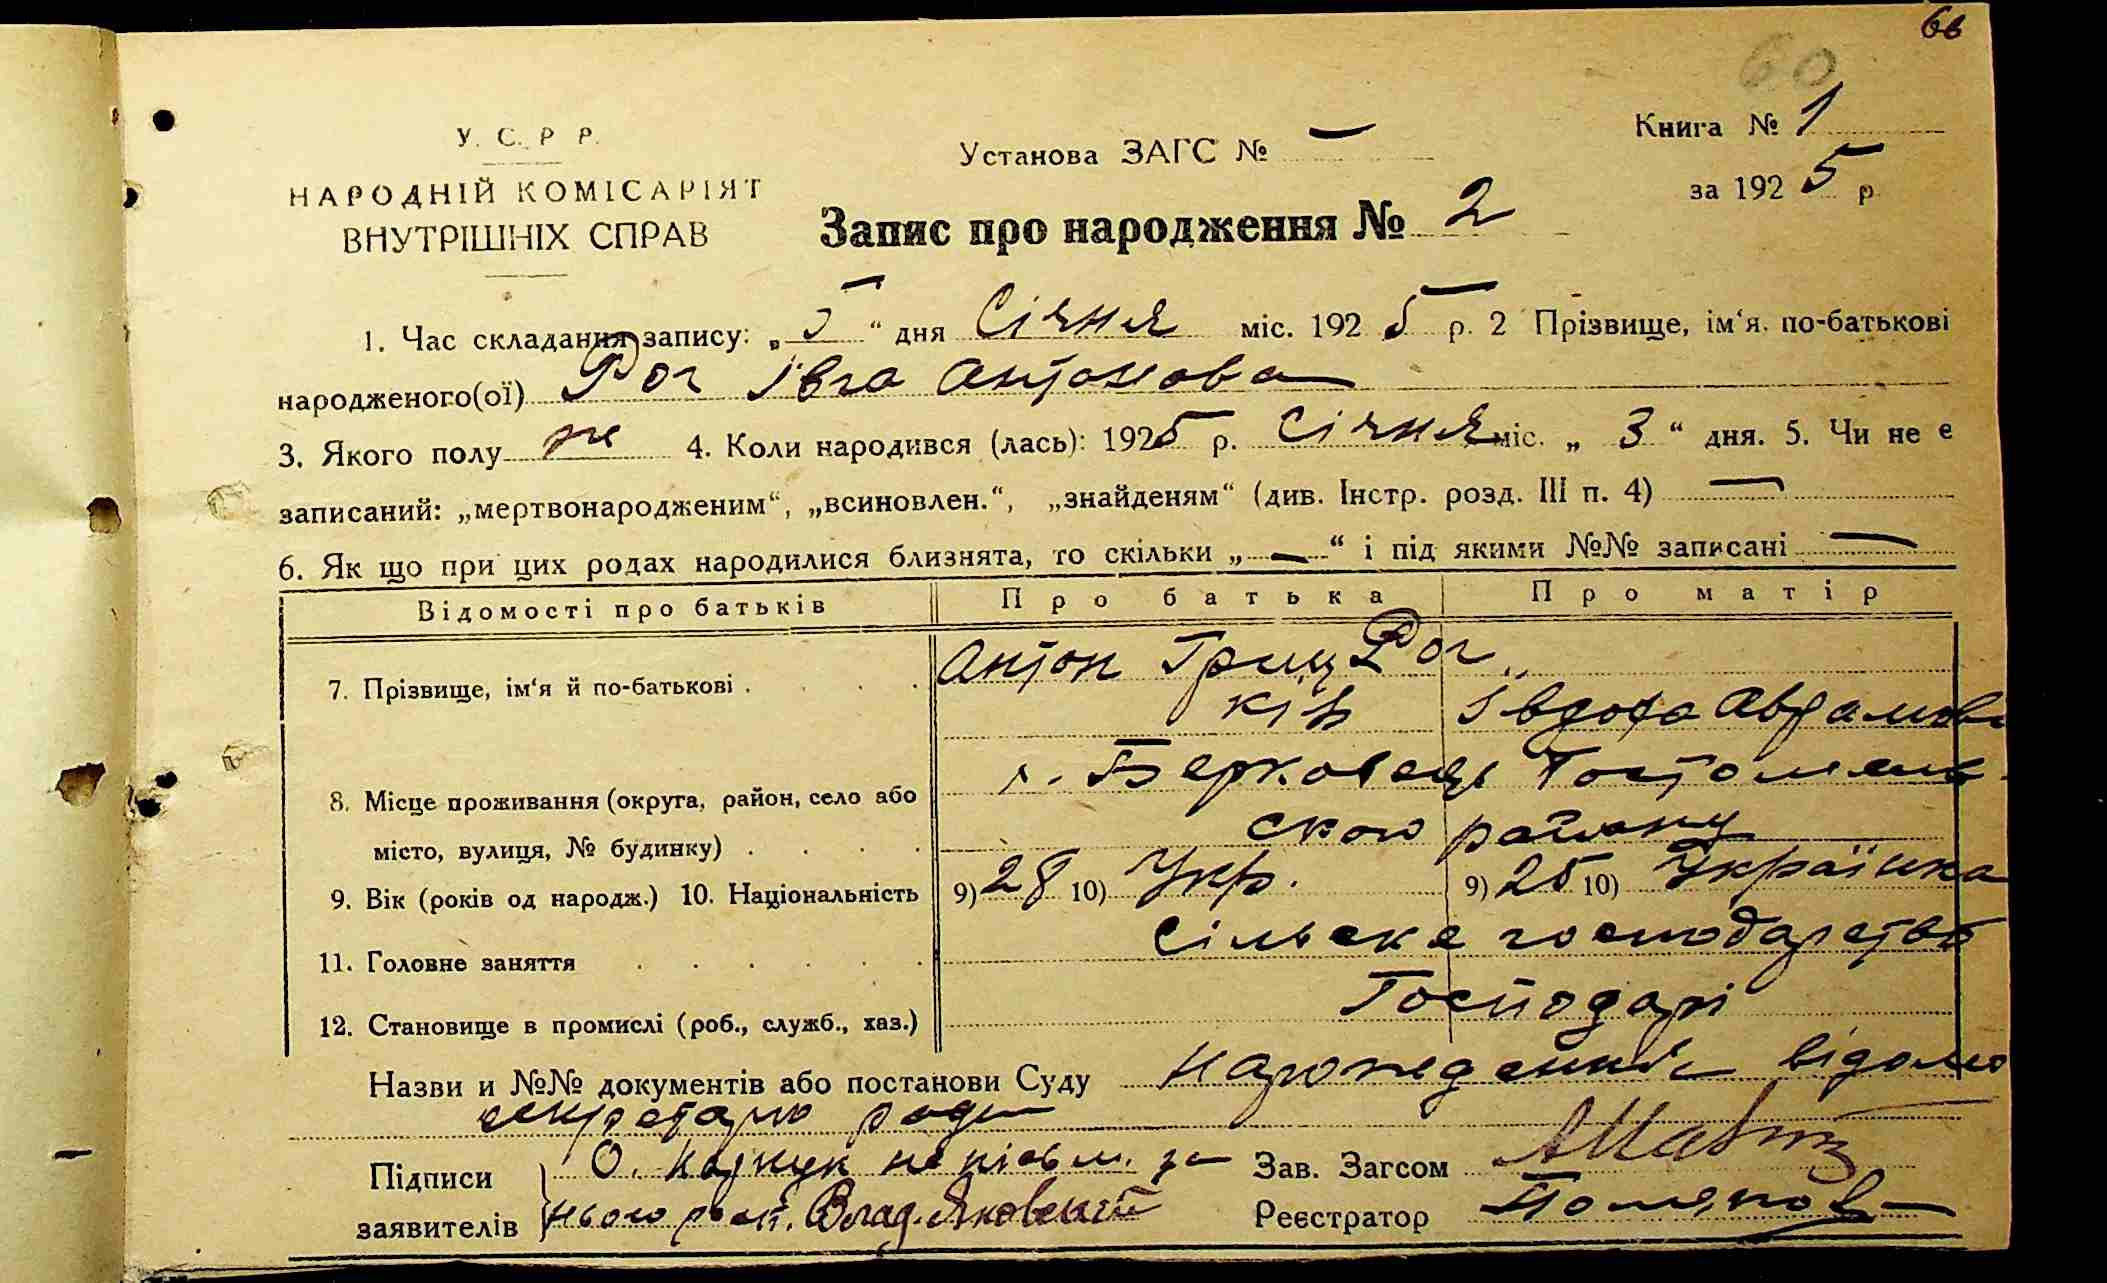 60
60
У. С. Р Р.
НАРОДНІЙ КОМІСАРІЯТ
ВНУТРІШНІХ СПРАВ
Установа ЗАГС № —
Книга № 1
за 1925 р.
Запис про народження № 2
1. Час складання запису: „5“ дня Січня міс. 1925 р. 2 Прізвище, ім‘я. по-батькові
народженого(ої) Рог Івга Антонова
3. Якого полу же 4. Коли народився (лась): 1925 р. Січня міс. „3“ дня. 5. Чи не є
записаний: „мертвонародженим“, „всиновлен.“, „знайденям“ (див. Інстр. розд. III п. 4) —
6. Як що при цих родах народилися близнята, то скільки „—“ і під якими №№ записані —
Відомості про батьків Про батька Про матір
7. Прізвище, ім‘я й по-батькові . . . . Антон Гриц Рог
ків Івдоха Аврамова
8. Місце проживання (округа, район, село або
місто, вулиця, № будинку) . . . .
Берковець Гостомель
ского району
9. Вік (років од народж.) 10. Національність 9) 28 10) Укр. 9) 25 10) Українка
11. Головне заняття . . . . . . Сільске господарство
12. Становище в промислі (роб., служб., хаз.) Господарі
Назви и №№ документів або постанови Суду народження відомо
секретарю ради
Підписи
заявителів
О. неписьм. за
нього росп. Влад. Яковский
Зав. Загсом
Реєстратор